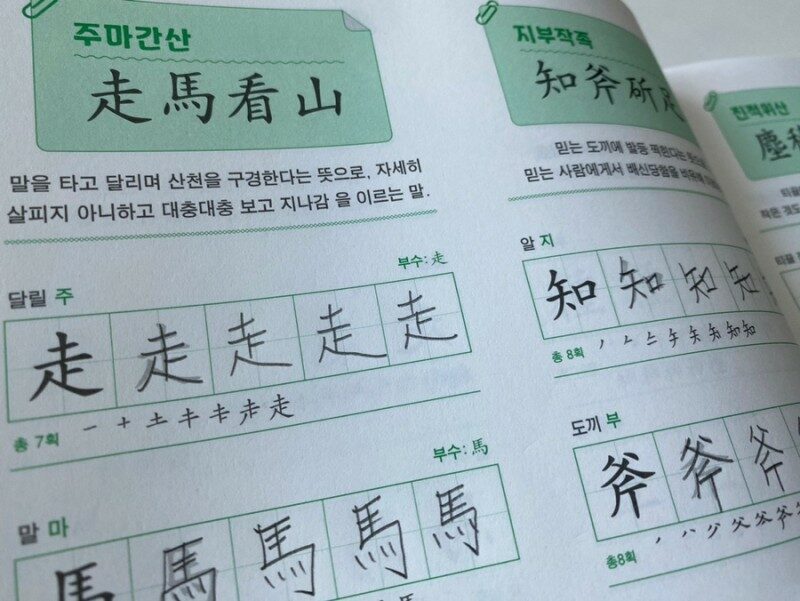 주마간산
走馬看山
말을 타고 달리며 산천을 구경한다는 뜻으로, 자세히
살피지 아니하고 대충대충 보고 지나감 을 이르는 말.
달릴 주
부수: 走
走 走 走 走 走
총 7획 一 十 土 キ 走 走
말 마
부수: 馬
馬 馬 馬 馬 馬
지부작족
知斧斫足
믿는 도끼에 발등 찍힌다는
믿는 사람에게서 배신당함을
알 지
知 知 知 知
총 8획 知 知
도끼 부
斧 斧 斧
총8획
진적위산
塵積
티끌
작은 것도
티끌